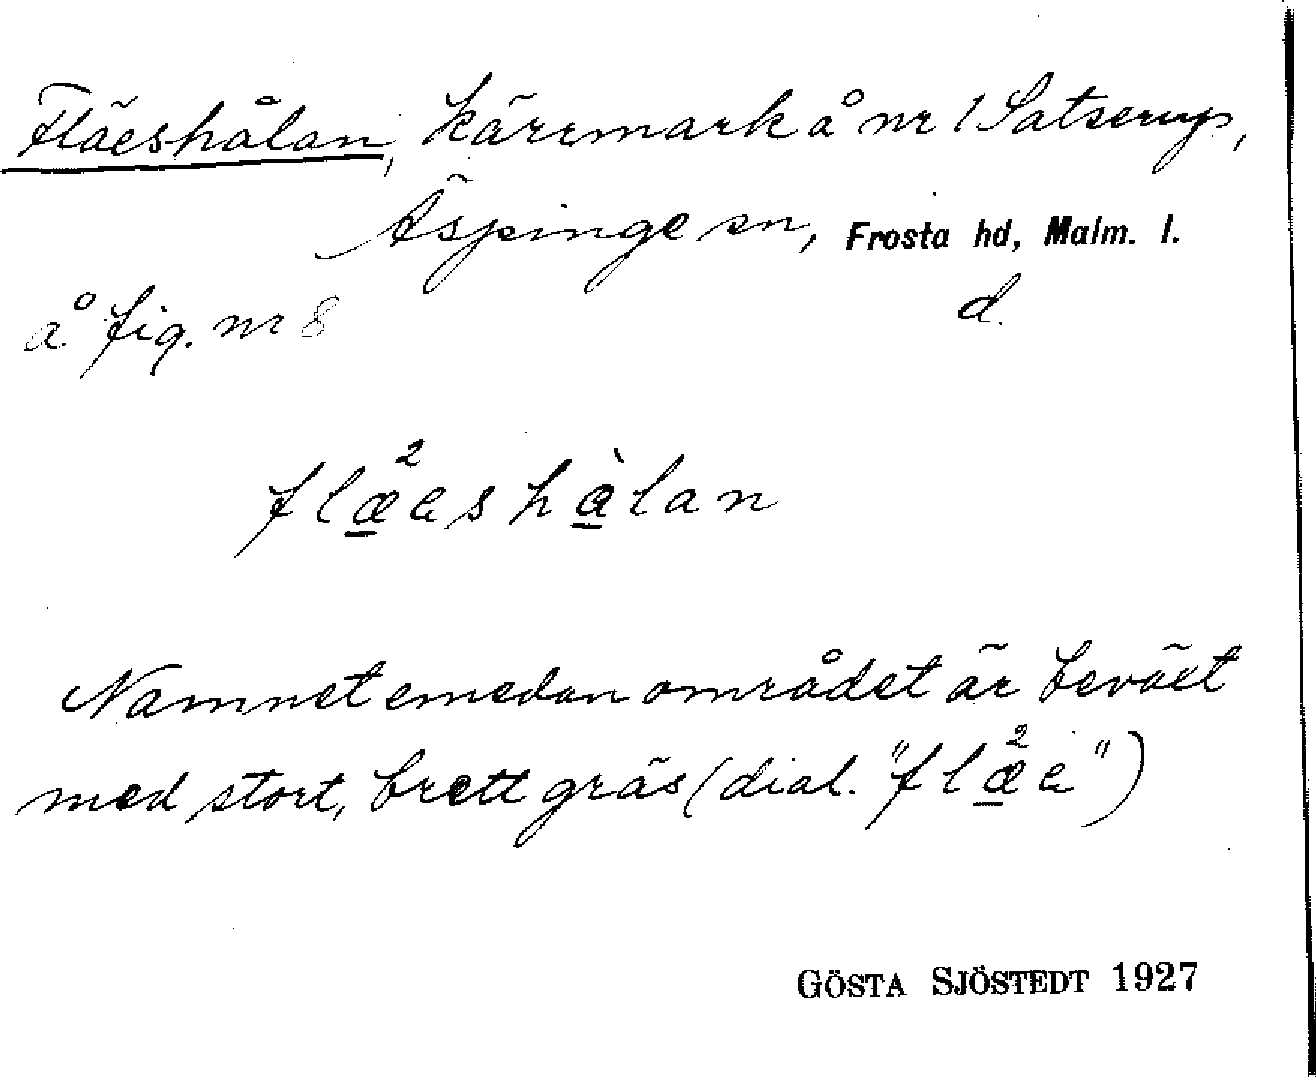 Fläeshålan, kärrmark å nr 1 Satserup,
Äspinge sn, Frosta hd, Malm. l.
å fig. nr 8 d.
flæ²eshàlan
Namnet emedan området är beväxt
med stort, brett gräs (dial. "flæ²e")
GÖSTA SJÖSTEDT 1927